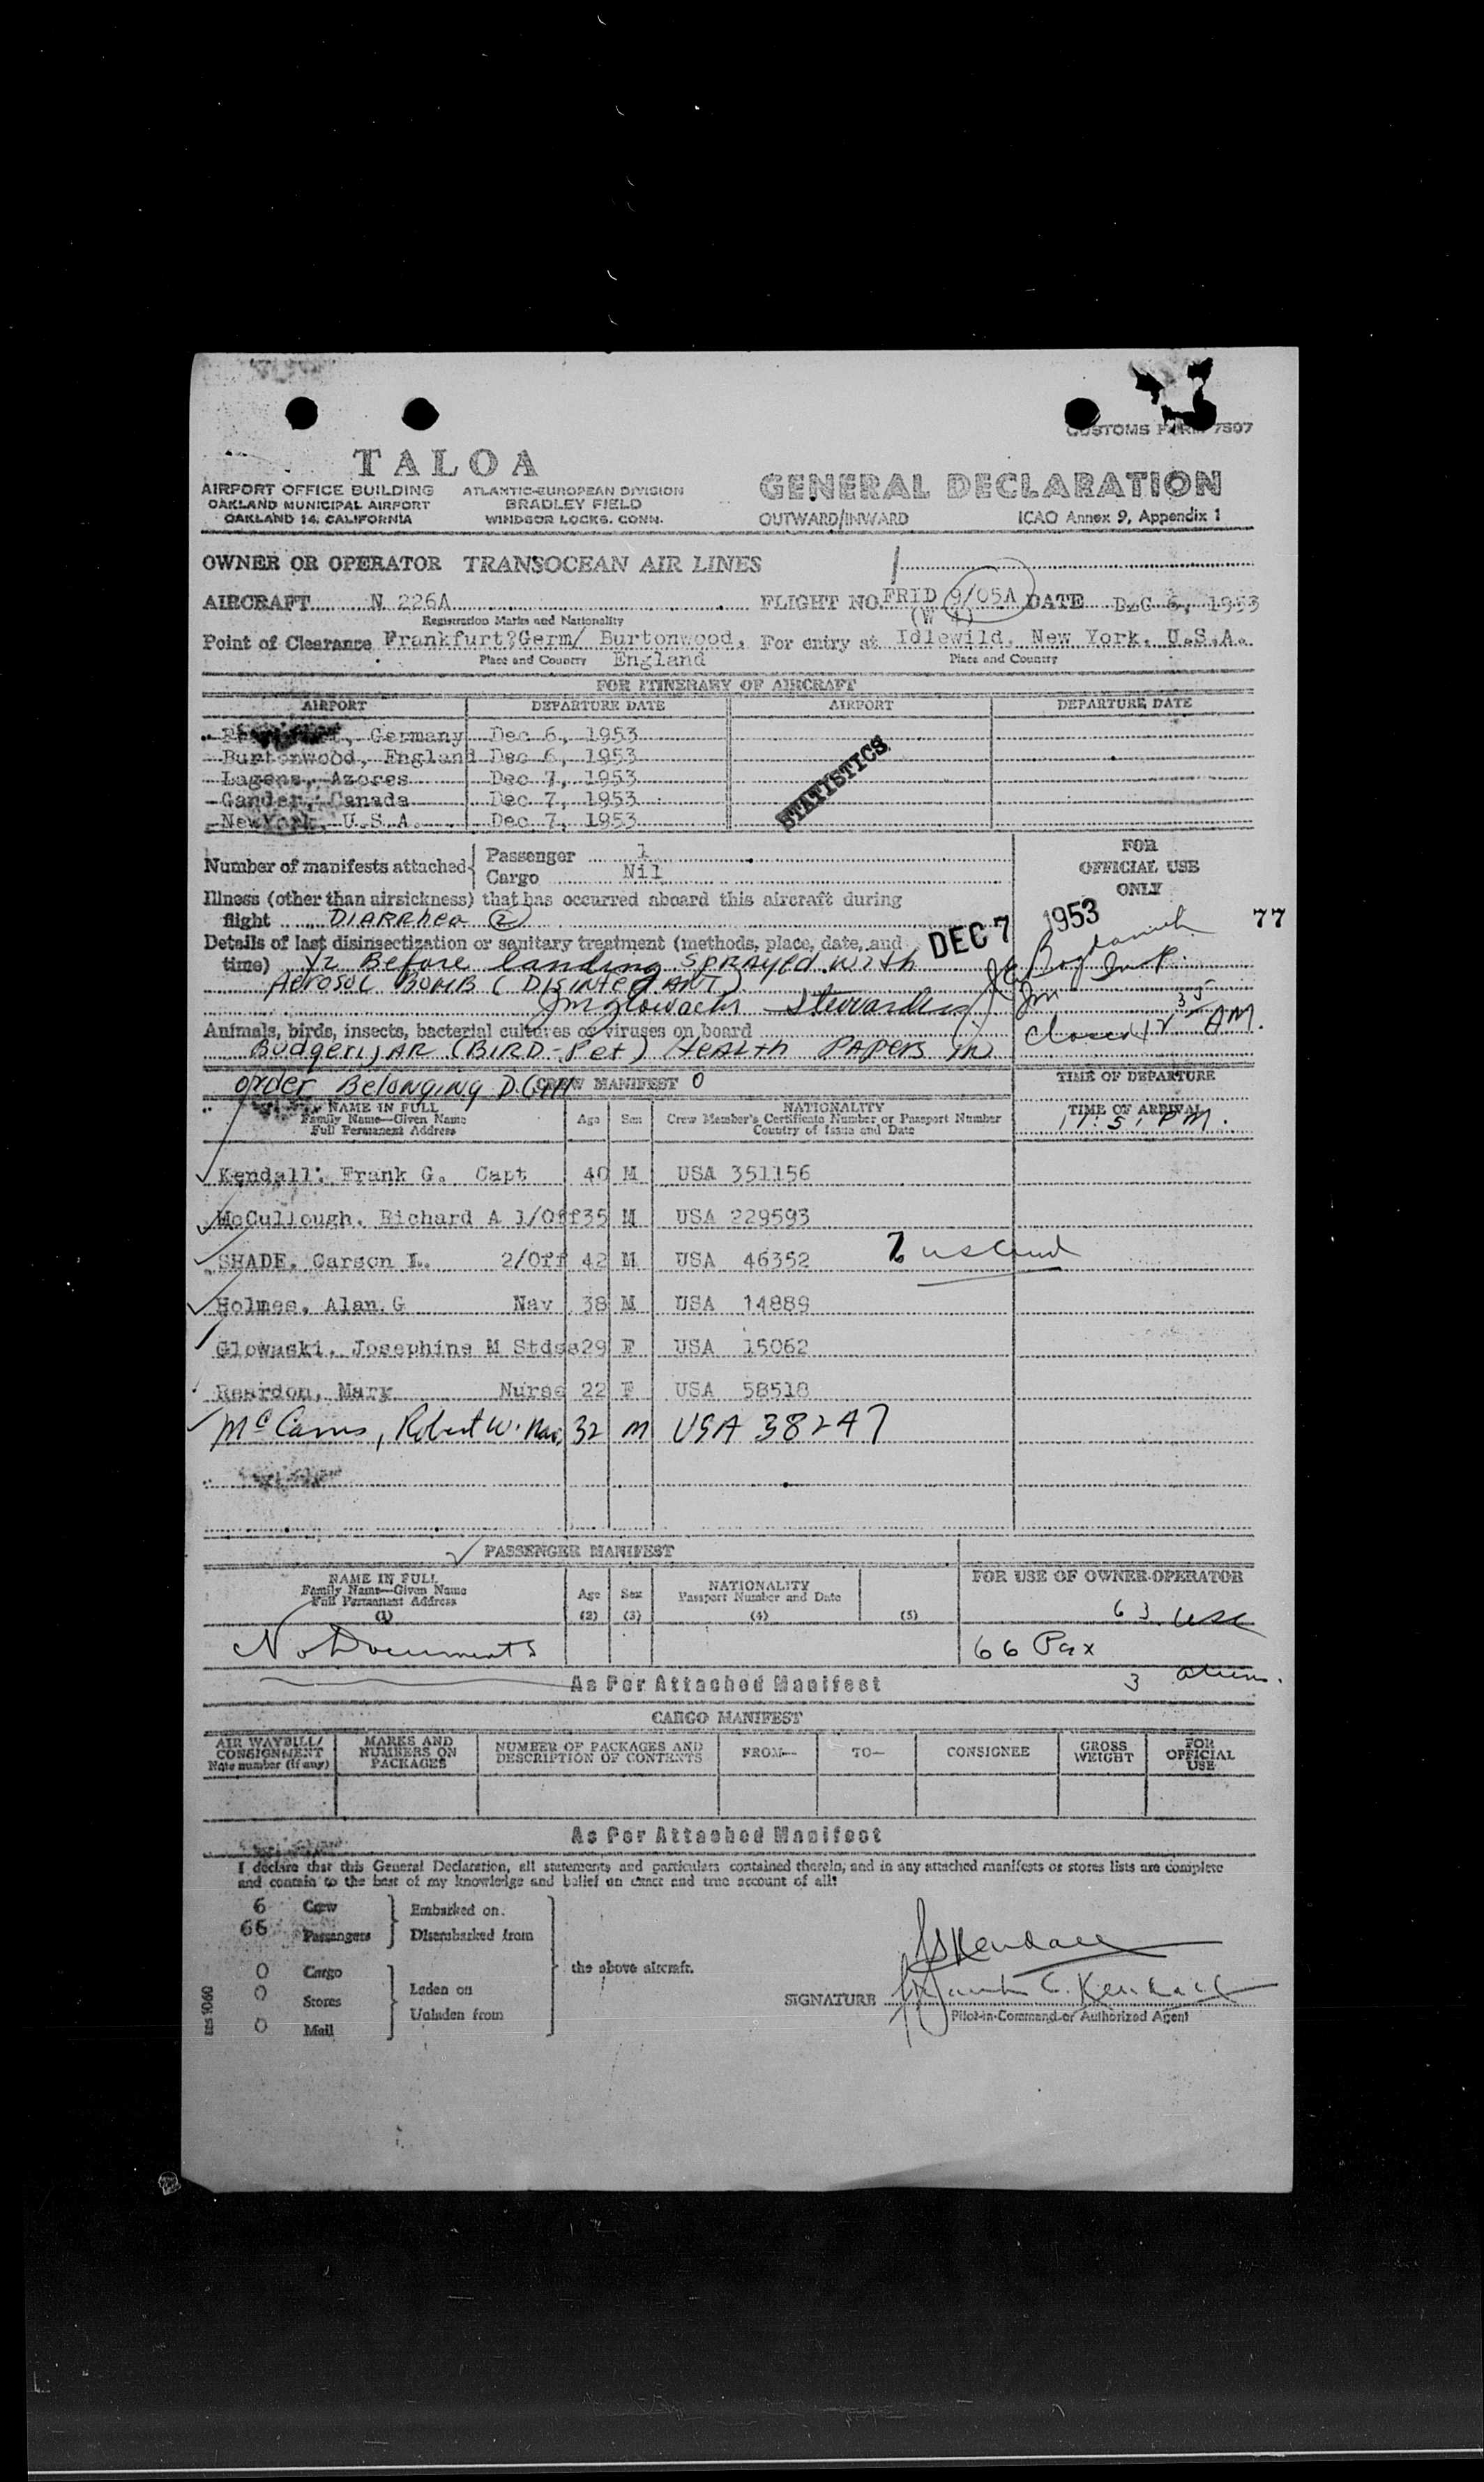 CUSTOMS FORM 7507
TALOA
AIRPORT OFFICE BUILDING
OAKLAND MUNICIPAL AIRPORT
OAKLAND 14, CALIFORNIA
ATLANTIC-EUROPEAN DIVISION
BRADLEY FIELD
WINDSOR LOCKS, CONN.
GENERAL DECLARATION
OUTWARD/INWARD
ICAO Annex 9, Appendix 1
OWNER OR OPERATOR TRANSOCEAN AIR LINES
AIRCRAFT N 226A FLIGHT NO. FRID 9/05A DATE Dec 6, 1953
Registration Marks and Nationality
Point of Clearance Frankfurt?Germ/ Burtonwood, For entry at Idlewild, New York, U.S.A.
Place and Country England Place and Country
FOR ITINERARY OF AIRCRAFT
AIRPORT DEPARTURE DATE AIRPORT DEPARTURE DATE
, Germany Dec 6, 1953
Burtonwood, England Dec 6, 1953
Lagens, Azores Dec 7, 1953
Gander, Canada Dec 7, 1953
NewYork, U.S.A. Dec 7, 1953
STATISTICS
Number of manifests attached
Passenger 1
Cargo Nil
FOR
OFFICIAL USE
ONLY
Illness (other than airsickness) that has occurred aboard this aircraft during
flight DIARRhea 2
DEC 7 1953
77
Details of last disinsectization or sanitary treatment (methods, place, date, and
time) 1/2 Before landing sprayed with
Aerosol Bomb (DISINFECTANT)
Stewardess
Animals, birds, insects, bacterial cultures or viruses on board
Budgerijar (BIRD-Pet) Health Papers in
order Belonging
Closed 12 35 AM.
CREW MANIFEST 0
TIME OF DEPARTURE
TIME OF ARRIVAL
NAME IN FULL
Family Name—Given Name
Full Permanent Address
Age
Sex
NATIONALITY
Crew Member's Certificate Number or Passport Number
Country of Issue and Date
Kendall: Frank G. Capt 40 M USA 351156
McCullough, Richard A 1/Off 35 M USA 229593
SHADE, Carson L. 2/Off 42 M USA 46352
Holmes, Alan.G Nav 38 M USA 14889
Glowaski, Josephine M Stdss 29 F USA 15062
Reardon, Mary Nurse 22 F USA 58518
Robert W. Nav, 32 M USA 38247
PASSENGER MANIFEST
NAME IN FULL
Family Name—Given Name
Full Permanent Address
(1)
Age
(2)
Sex
(3)
NATIONALITY
Passport Number and Date
(4)
(5)
FOR USE OF OWNER-OPERATOR
63 usc
No Documents
66 Pax
3 aliens.
As Per Attached Manifest
CARGO MANIFEST
AIR WAYBILL/
CONSIGNMENT
Note number (if any)
MARKS AND
NUMBERS ON
PACKAGES
NUMBER OF PACKAGES AND
DESCRIPTION OF CONTENTS
FROM—
TO—
CONSIGNEE
GROSS
WEIGHT
FOR
OFFICIAL
USE
As Per Attached Manifest
I declare that this General Declaration, all statements and particulars contained therein, and in any attached manifests or stores lists are complete
and contain to the best of my knowledge and belief an exact and true account of all:
6 Crew
66 Passengers
Embarked on
Disembarked from
0 Cargo
0 Stores
0 Mail
Laden on
Unladen from
the above aircraft.
SIGNATURE Frank G. Kendall
Pilot-in-Command or Authorized Agent